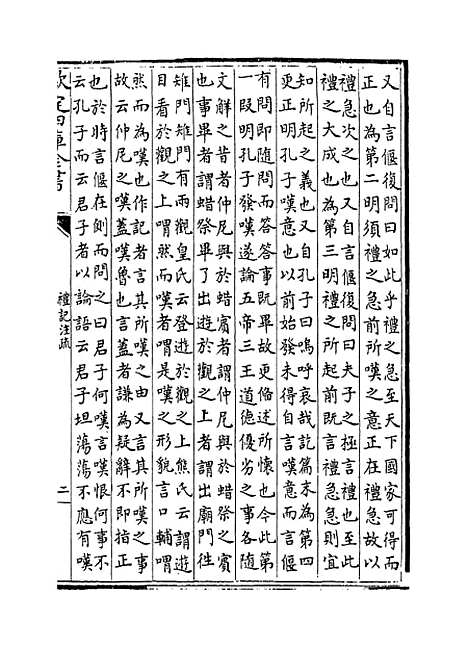 又自言偃復問曰如此乎禮之急至天下國家可得而
正也為第二明須禮之急前所嘆之意正在禮急故以
禮急次之也又自言偃復問曰夫子之極言禮也至此
禮之大成也為第三明禮之所起前既言禮急急則宜
知所起之義也又自孔子曰嗚呼哀哉訖篇末為第四
更正明孔子嘆意也以前始發未得自言嘆意而言偃
有問即隨問而答答事既畢故更備述所懷也今此第
一段明孔子發嘆遂論五帝三王道德優劣之事各隨
文解之昔者仲尼與於蜡賓者謂仲尼與於蜡祭之賓
也事畢者謂蜡祭畢了出遊於觀之上者謂出廟門往
雉門雉門有兩觀皇氏云登遊於觀之上熊氏云謂遊
目看於觀之上喟然而嘆者謂是嘆之形貌言口輔喟
然而為嘆也作記者言其所嘆之由又言其所嘆之事
故云仲尼之嘆蓋嘆魯也言蓋者謙為疑辭不即指正
也於時言偃在側而問之曰君子何嘆言嘆恨何事不
云孔子而云君子者以論語云君子坦蕩蕩不應有嘆
欽定四庫全書
禮記注疏
二